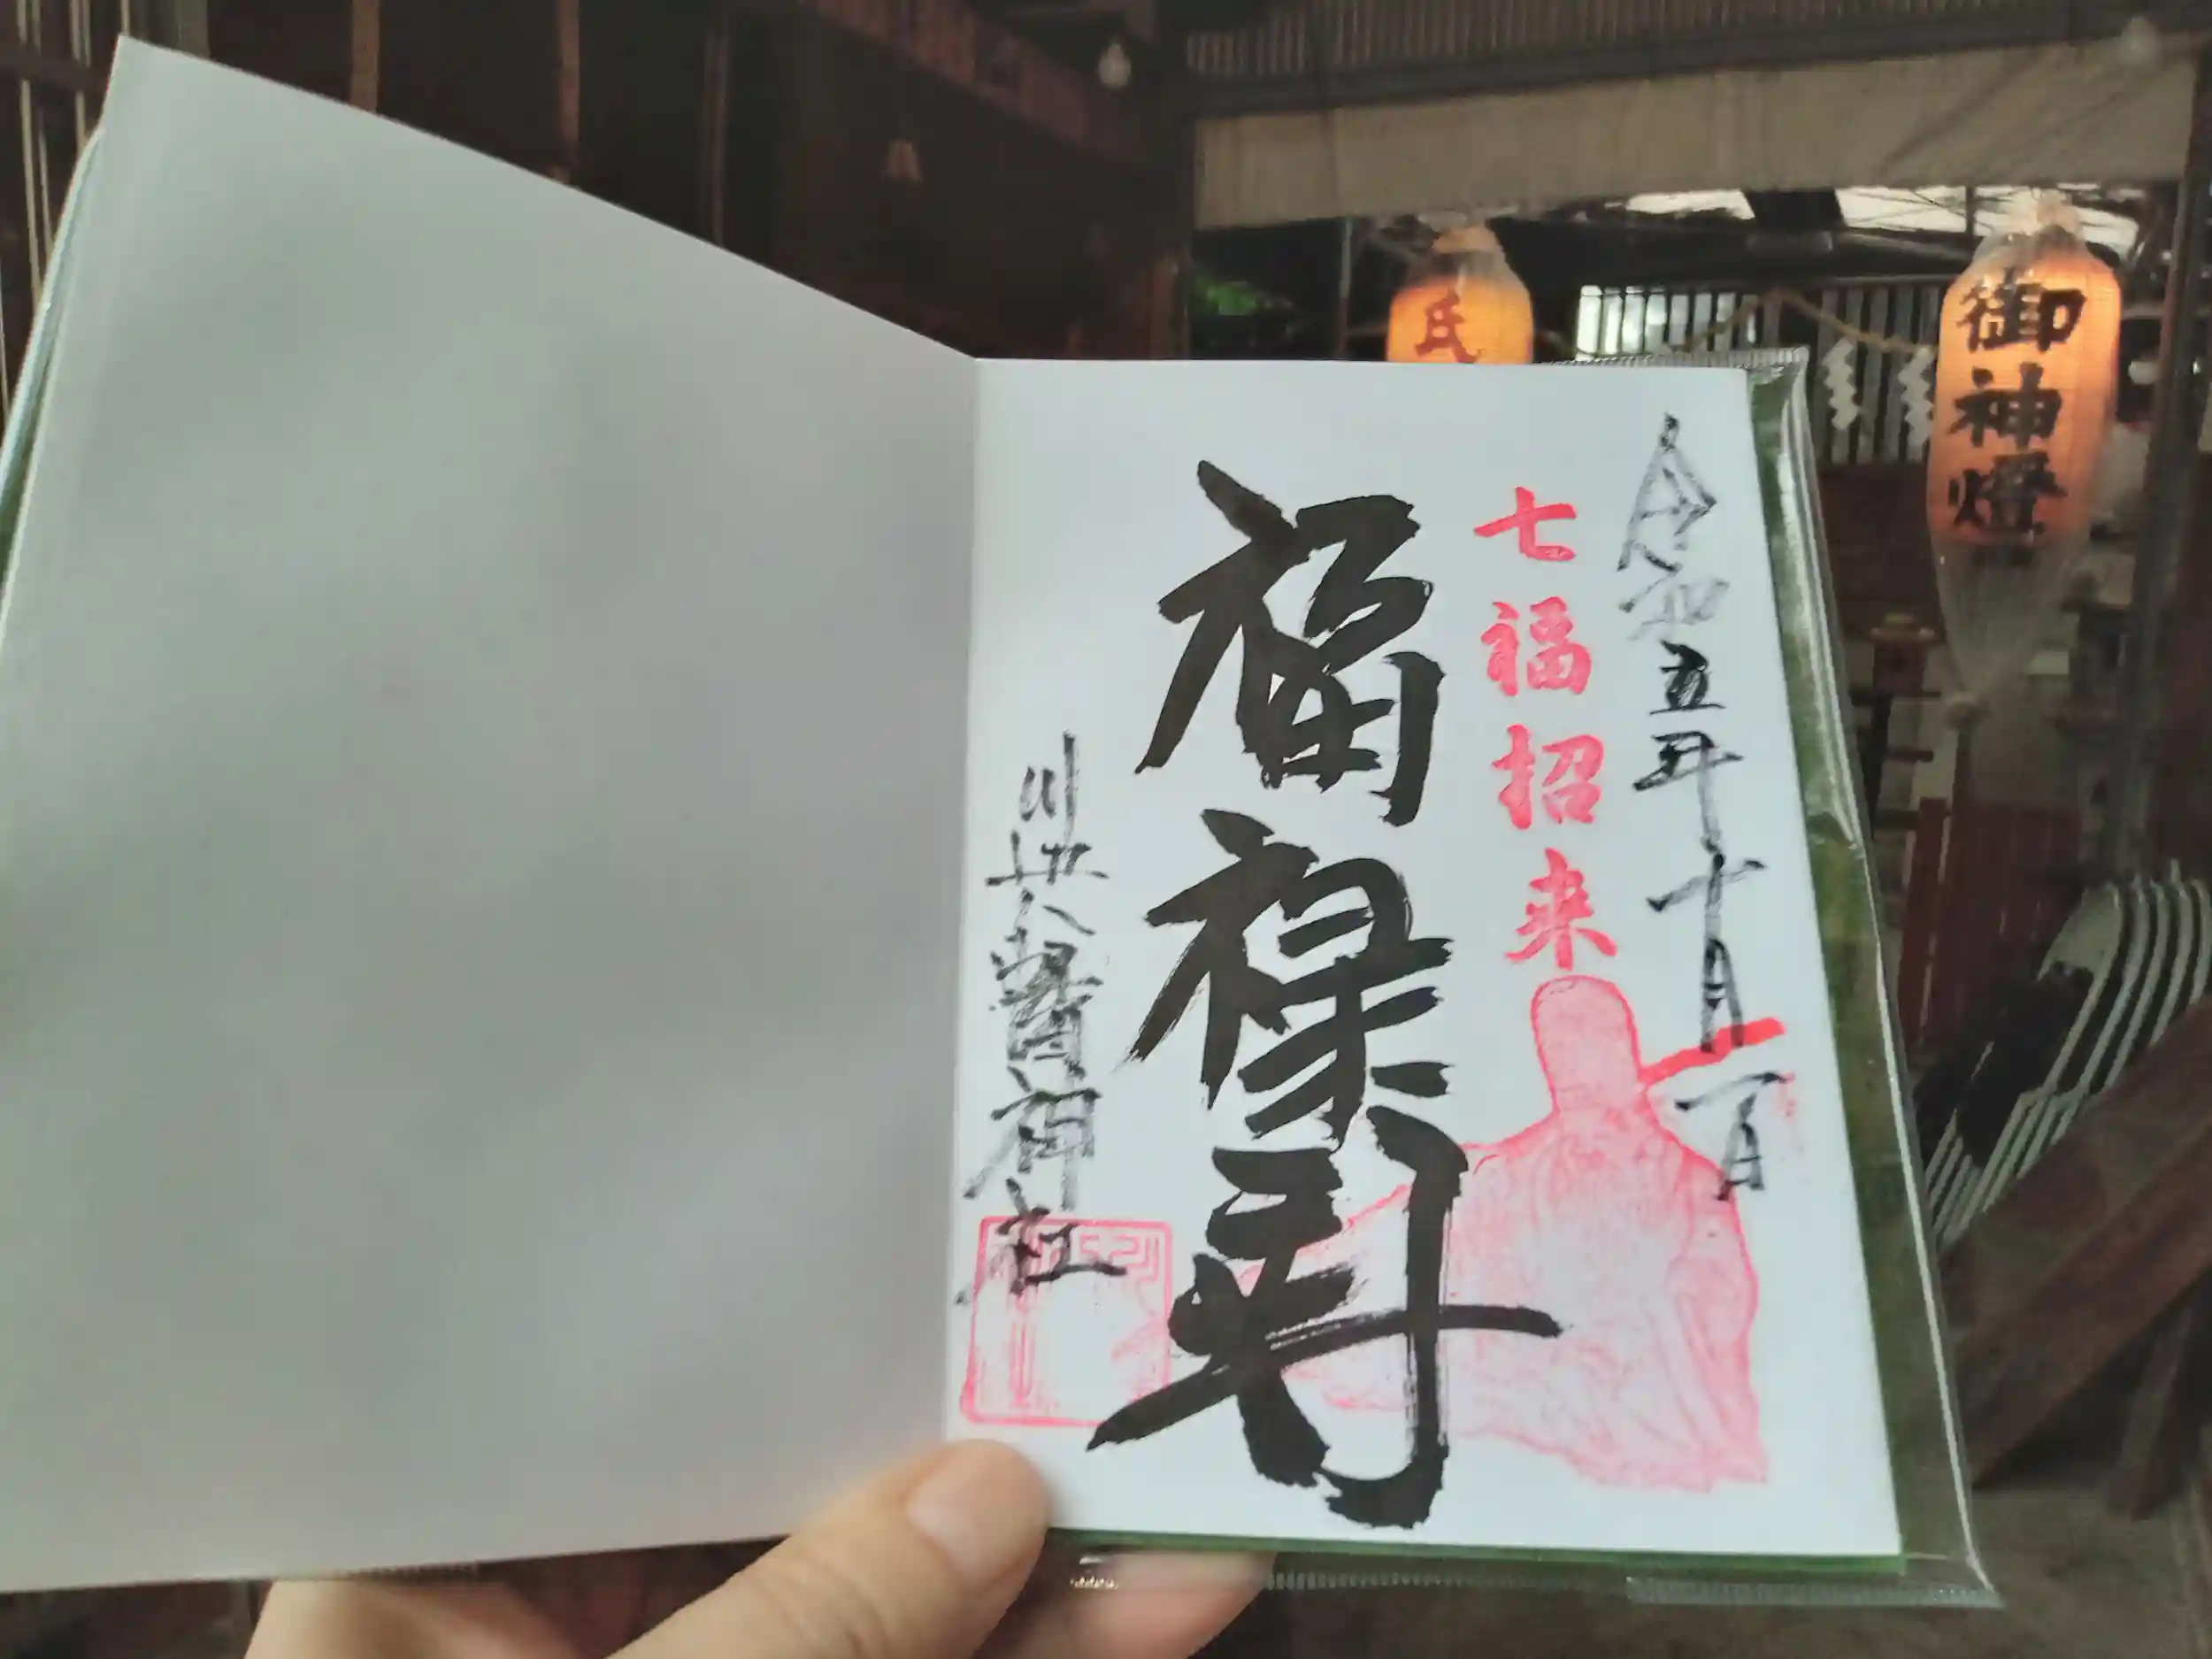 令和五年十月一日
七福招来
福禄寿
神社
氏
御神燈